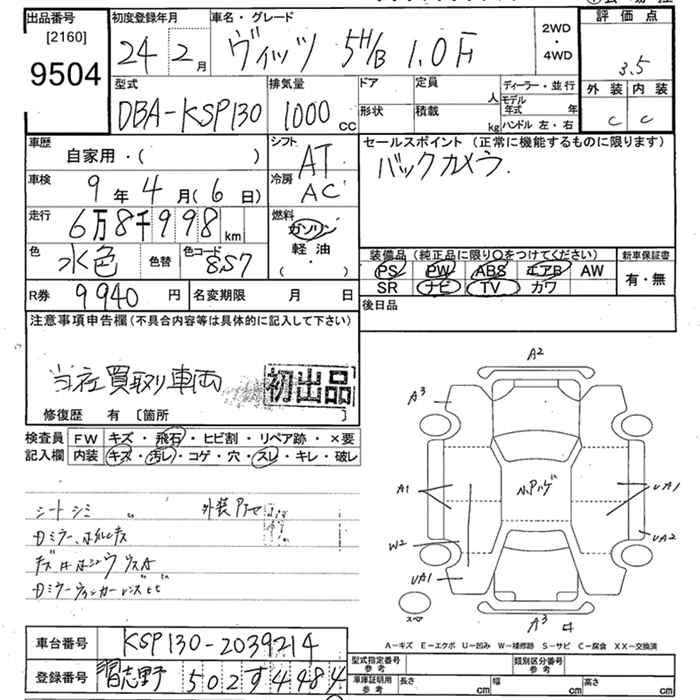 出品番号
[2160]
9504
初度登録年月
24 2月
車名・グレード
ヴィッツ 5H/B 1.0F
2WD
・
4WD
評価点
3.5
外装 内装
C C
型式
DBA-KSP130
排気量
1000 cc
ドア
形状
定員
人
積載
kg
ディーラー・並行
モデル年式 年
ハンドル 左・右
車歴
自家用・( )
シフト
AT
車検
9年4月(6日)
冷房
AC
走行
6万8千998km
燃料
ガソリン
軽油
( ・ )
色
水色
色替
色コード
8S7
R券
9940円
名変期限 月 日
セールスポイント (正常に機能するものに限ります)
バックカメラ.
装備品 (純正品に限り○をつけてください)
PS PW ABS エアB AW
SR ナビ TV カワ
新車保証書
有・無
後日品
注意事項申告欄(不具合内容等は具体的に記入して下さい)
当社買取り車両
初出品
修復歴 有 〔箇所 〕
検査員
記入欄
FW キズ・飛石・ヒビ割・リペア跡・×要
内装 キズ・汚レ・コゲ・穴・スレ・キレ・破レ
シートシミ
外装
Dミラー
A2
A3
A1
W2
UA1
UA1
UA2
A3
スペア
A−キズ E−エクボ U−凹み W−補修跡 S−サビ C−腐食 XX−交換済
車台番号
KSP130-2039214
登録番号
習志野 502す4484
型式指定番号
参考
類別区分番号
参考
車庫証明用
参考
長さ cm
幅 cm
高さ cm